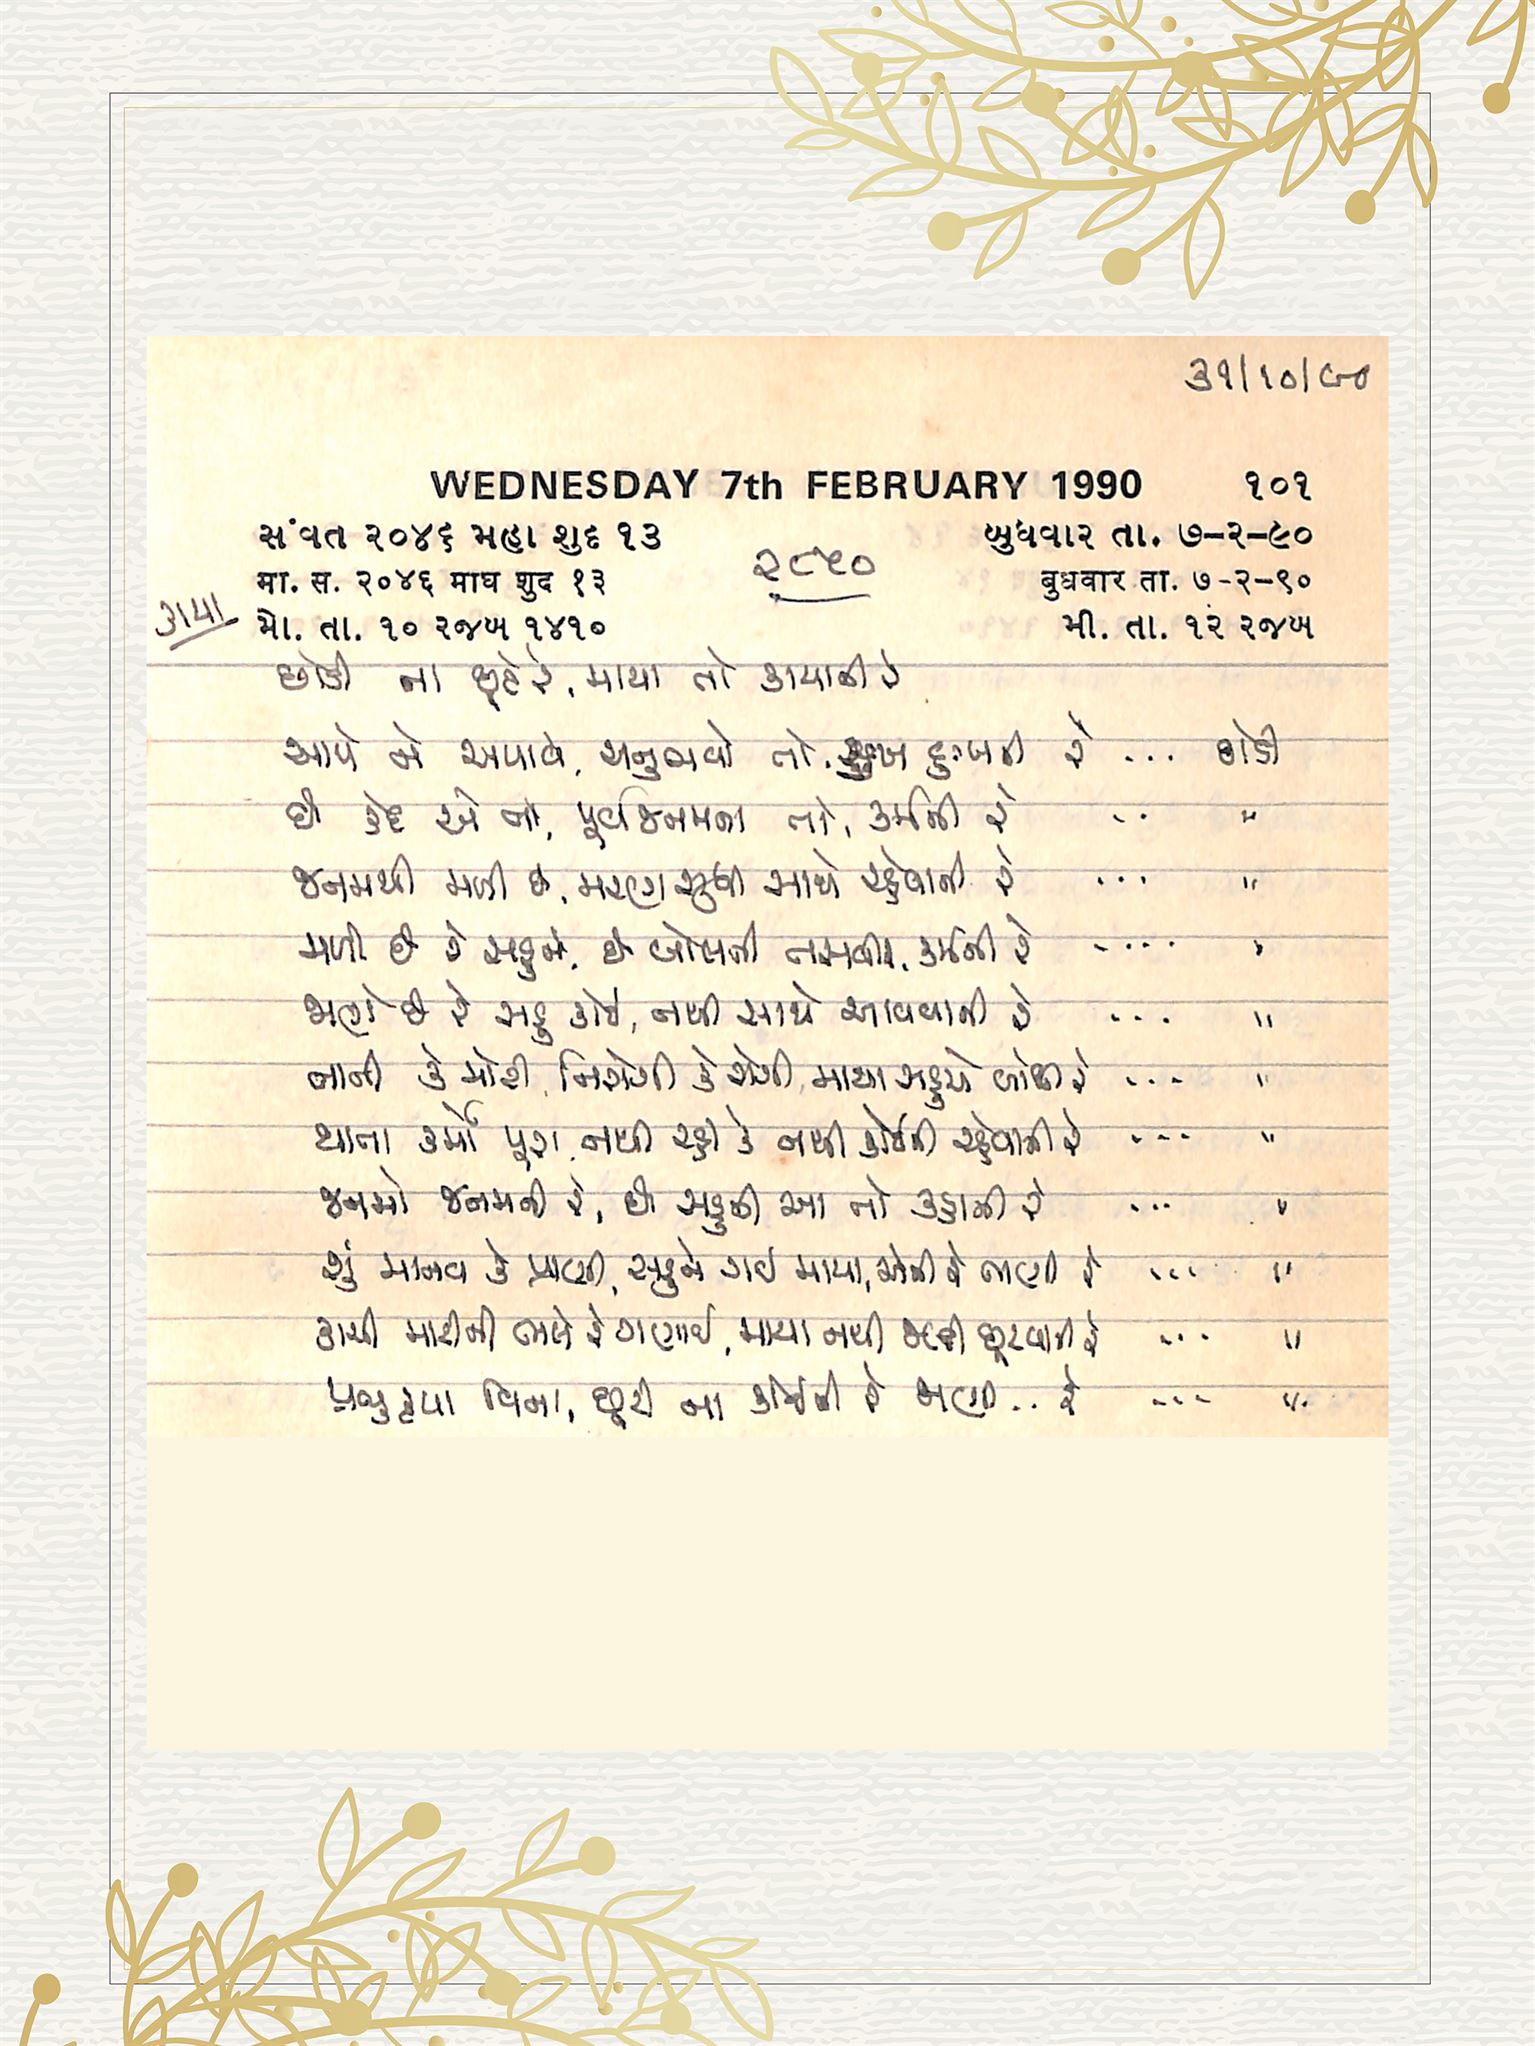 ૩૧/૧૦/૯૦
WEDNESDAY 7th FEBRUARY 1990 ૧૦૧
સંવત ૨૦૪૬ મહા શુદ ૧૩ બુધવાર તા. ૭-૨-૯૦
૨૮૫૦
मा. स. २०४६ माघ शुद १३ बुधवार ता. ७-२-९०
કાયા
મો. તા. ૧૦ રજબ ૧૪૧૦ મી. તા. ૧૨ રજબ
છોડી ના છૂટે રે, માયા તો કાયાની રે
આપે ને અપાવે, અનુભવો તો, સુખ દુઃખની રે ... છોડી
છે કેદ એ તો, પૂર્વજનમના તો, કર્મની રે ... "
જનમથી મળી છે, મરણ સુધી સાથે રહેવાની રે ... "
મળી છે રે સહુને, છે બોલતી તસવીર, કર્મની રે .... "
જાણે છે રે સહુ કોઈ, નથી સાથે આવવાની રે ... "
નાની કે મોટી, નિરોગી કે રોગી, માયા સહુએ બાંધી રે ... "
થાતા કર્મો પૂરા, નથી રહી કે નથી કોઈની રહેવાની રે ... "
જનમો જનમની રે, છે સહુની આ તો કહાની રે ... "
શું માનવ કે પ્રાણી, સહુને ગઈ માયા, એની રે બાંધી રે ... "
કાચી માટીની ભલે રે ગણાઈ, માયા નથી જલદી છૂટવાની રે ... "
પ્રભુકૃપા વિના, છૂટી ના કોઈની રે જાણી.. રે ... "